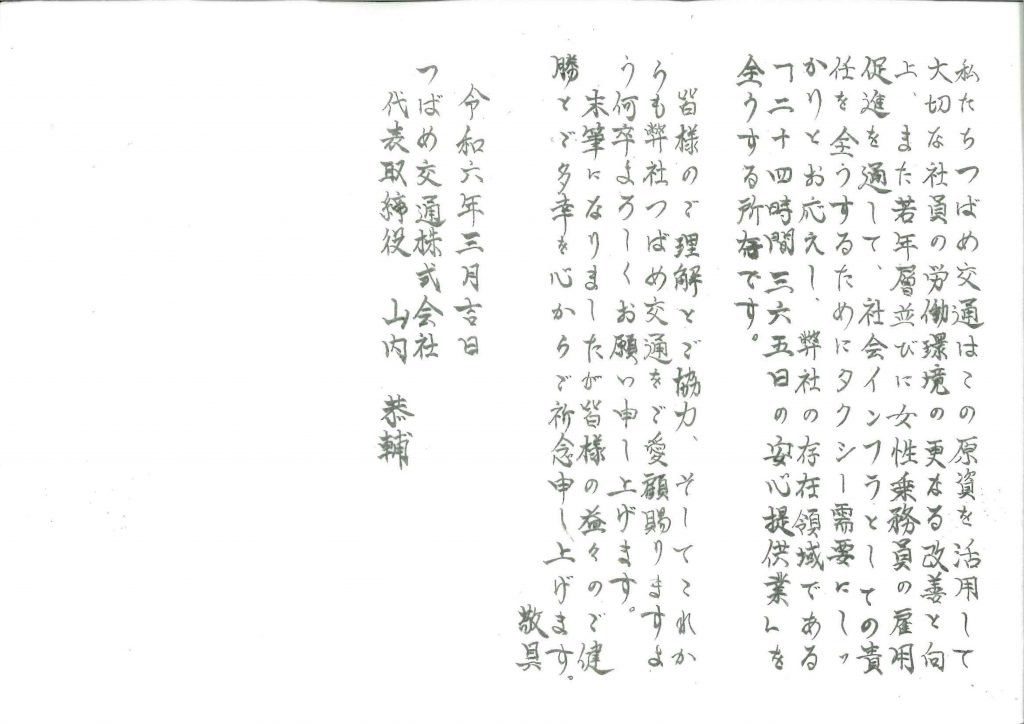 私たちつばめ交通はこの原資を活用して
大切な社員の労働環境の更なる改善と向
上、また若年層並びに女性乗務員の雇用
促進を通して、社会インフラとしての責
任を全うするためにタクシー需要にしっ
かりとお応えし、弊社の存在領域である
「二十四時間三六五日の安心提供業」を
全うする所存です。
皆様のご理解とご協力、そしてこれか
らも弊社つばめ交通をご愛顧賜りますよ
う何卒よろしくお願い申し上げます。
末筆になりましたが皆様の益々のご健
勝とご多幸を心からご祈念申し上げます。
敬具
令和六年三月吉日
つばめ交通株式会社
代表取締役 山内 恭輔